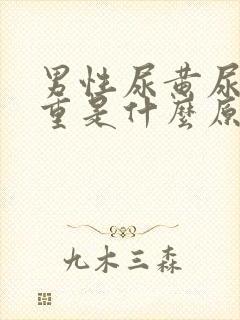 男性尿黄尿
重是什麼原
九木三森